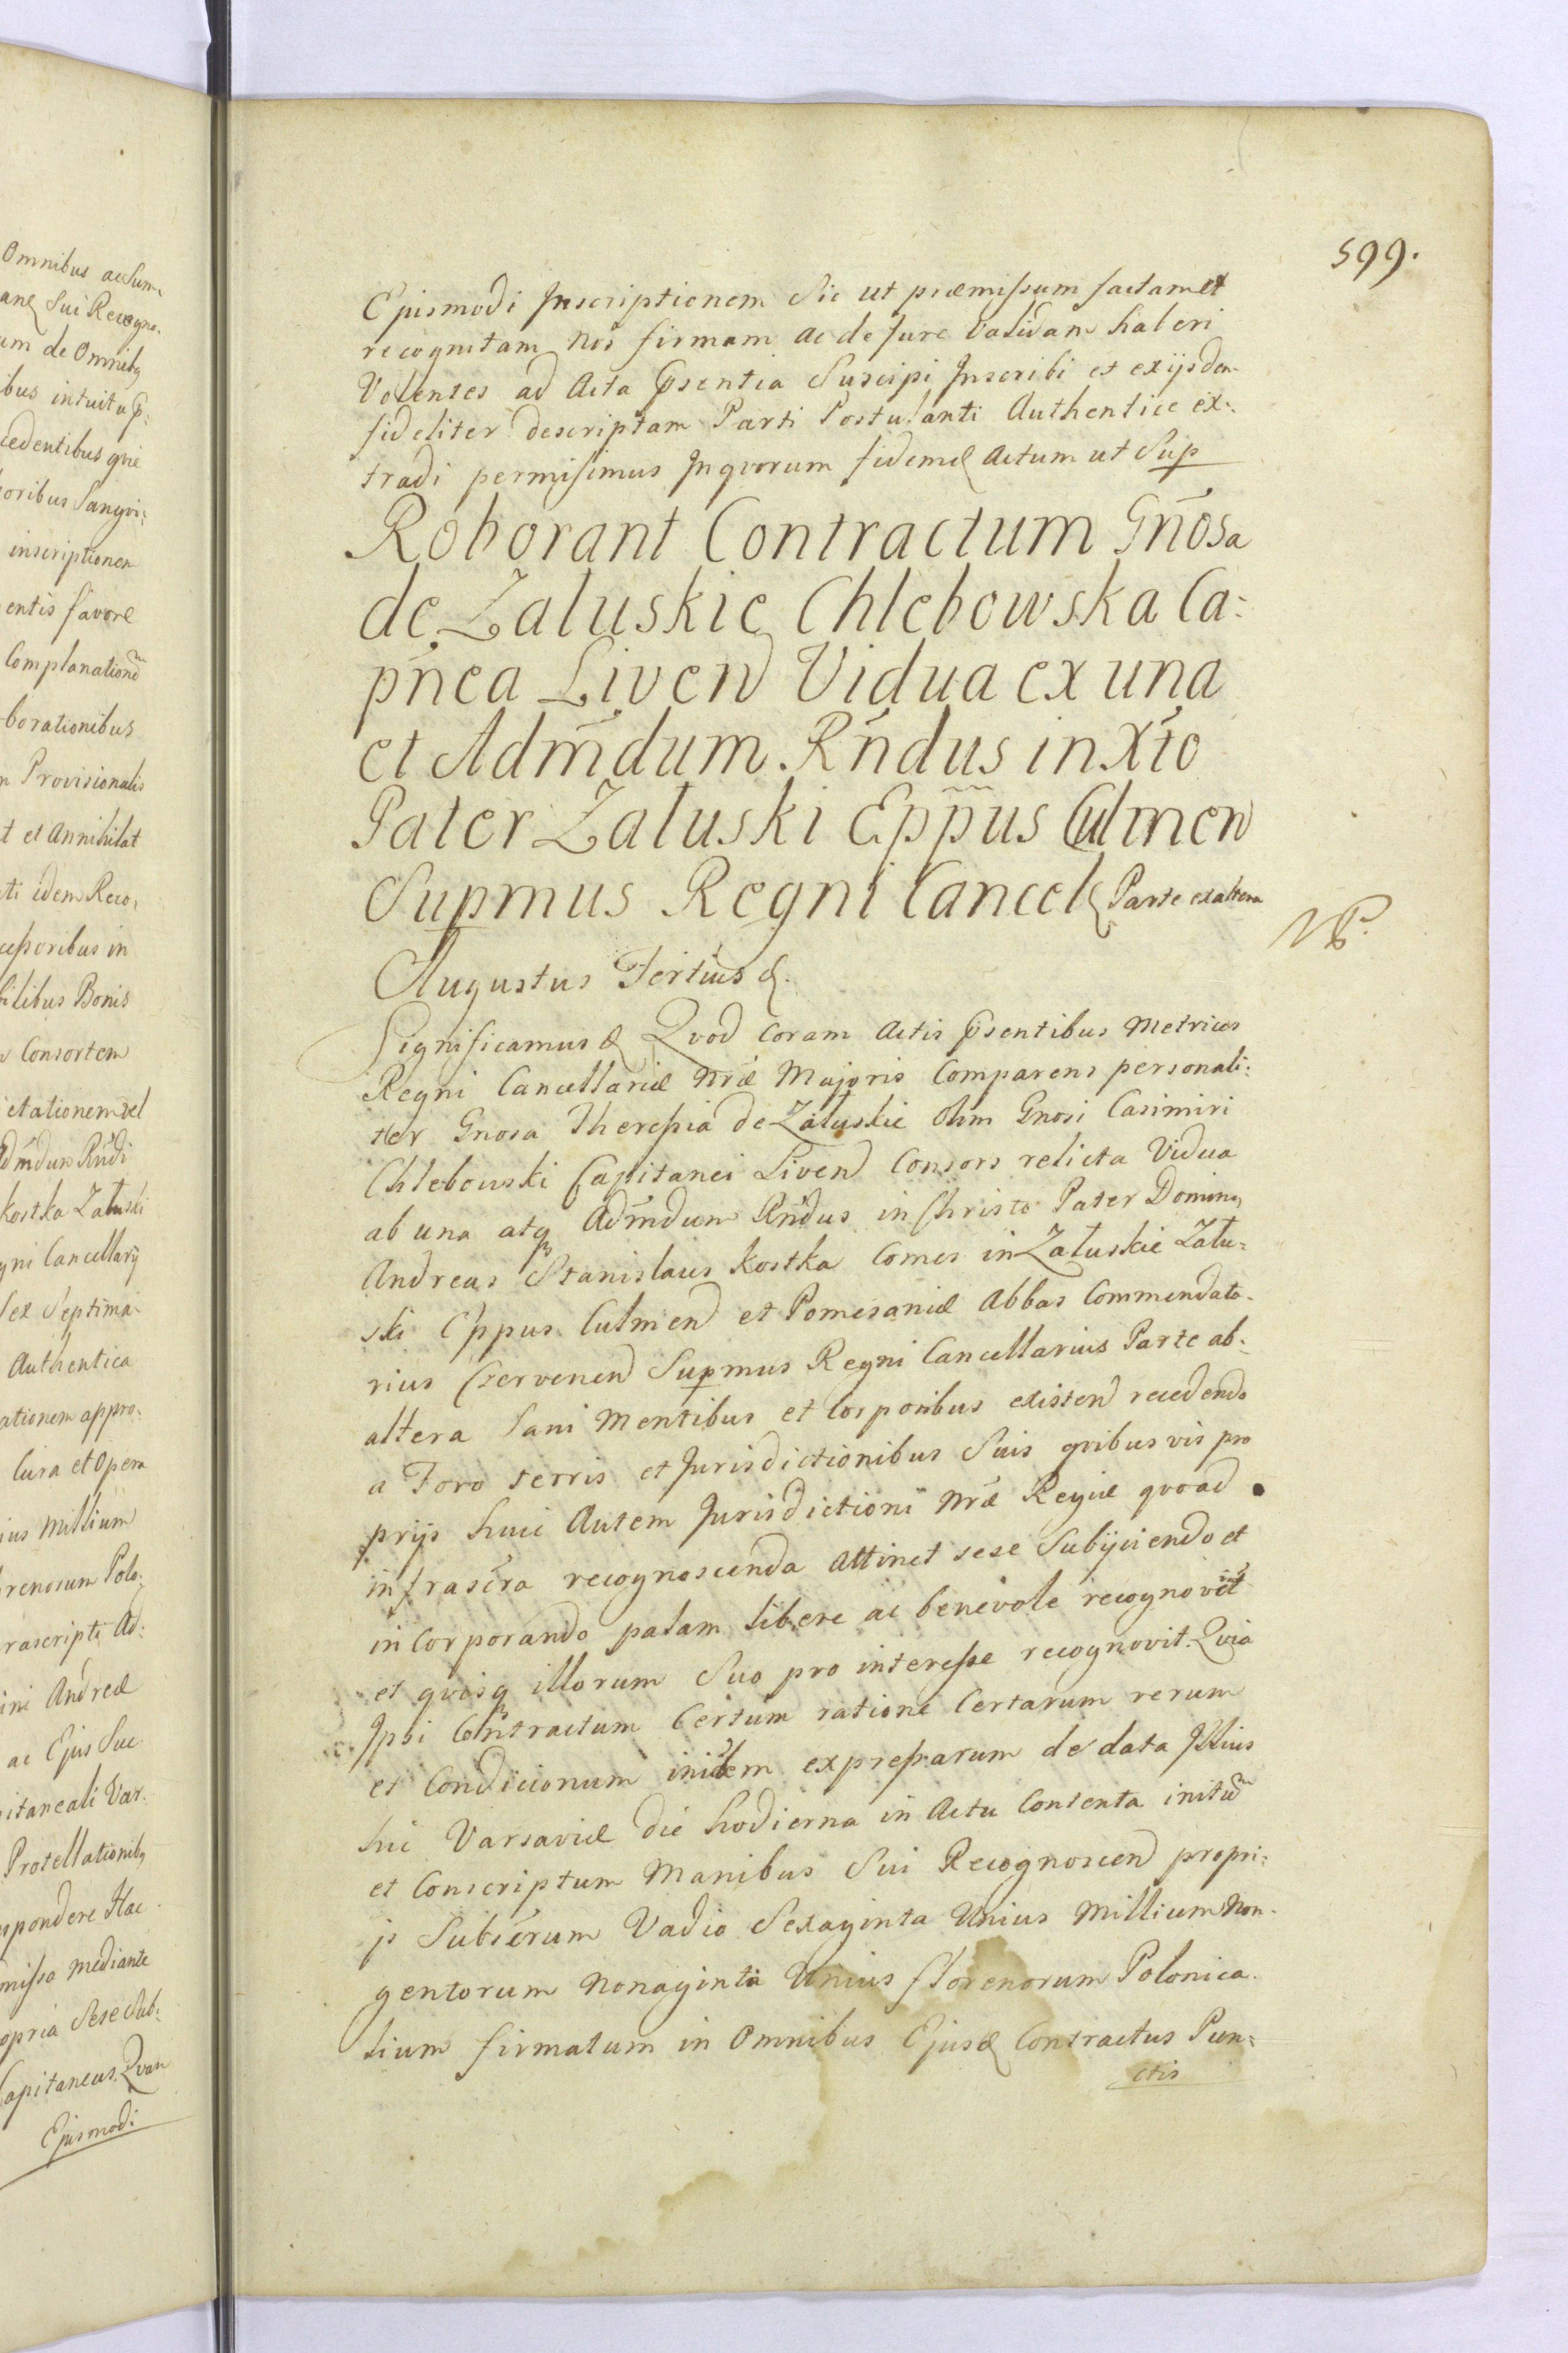 Omnibus ac Sum-
Sui Recogno-
um de Omnibq
ibus intuitu
cedentibus qvie
oribus Sangvi:
inscriptionem
entis favore
Complanationē
borationibus
n Provisionalis
t et Annihilat
ti idem Reco,
cessoribus in
bilibus Bonis
Consortem
etationem vel
Admdum Rndi
Kostka Załuski
gni Cancellarij
Sex Septima
Authentica
ationem appro:
Cura et Opera
ius Millium
orenorum Polo:
rascripti Ad:
ini Andreæ
ac Ejus Suc
itaneali Var.
Protestationibq
spondere Hac
missa mediante
opria Sese Sub:
Capitaneus. Qvam
Ejusmodi
599.
Ejusmodi Inscriptionem Sic ut præmissum factam et
recognitam Nos firmam ac de Jure Validam haberi
Volentes ad Acta Psentia Suscipi Inscribi et exijsdem
fideliter descriptam Parti Postulanti Authentice ex:
tradi permisimus Inqvorum fidem& Actum ut Sup
Roborant Contractum Gnosa
de Załuskie Chlebowska Ca:
pnea Liven Vidua ex una
et Admdum Rndus in Xto
Pater Załuski Eppus Culmen
Supmus Regni Cancel& Parte ex altera
NB.
Augustus Tertius &.
Significamus & Qvod Coram Actis Psentibus Metrices
Regni Cancellariæ Nræ Majoris Comparens personali:
ter Gnosa Theressia de Załuskie Olim Gnosi Casimiri
Chlebowski Capitanei Liven Consors relicta Vidua
ab una atq Admdum Rndus in Christo Pater Dominq
Andreas Stanislaus Kostka Comes in Załuskie Zału:
ski Eppus Culmen et Pomesaniæ Abbas Commendata-
rius Czervenen Supmus Regni Cancellarius Parte ab:
altera Sani Mentibus et Corporibus existen recedendo
a Foro terris et Jurisdictionibus Suis qvibusvis pro
prijs huic Autem Jurisdictioni Nræ Regiæ qvoad
infrascra recognoscenda attinet sese Subijciendo et
inCorporando palam libere ac benevole recognovit
et qvisq illorum Suo pro interesse recognovit. Qvia
Ipsi Contractum Certum ratione Certarum rerum
et Condicionum inibem expressarum de data Illius
hic Varsaviæ die hodierna in Actu Contenta initū
et Conscriptum Manibus Sui Recognoscen propri:
js Subscrum Vadio Sexaginta Unius Millium Non-
gentorum Nonaginta Unius florenorum Polonica-
lium firmatum in Omnibus Ejus& Contractus Pun:
ctis